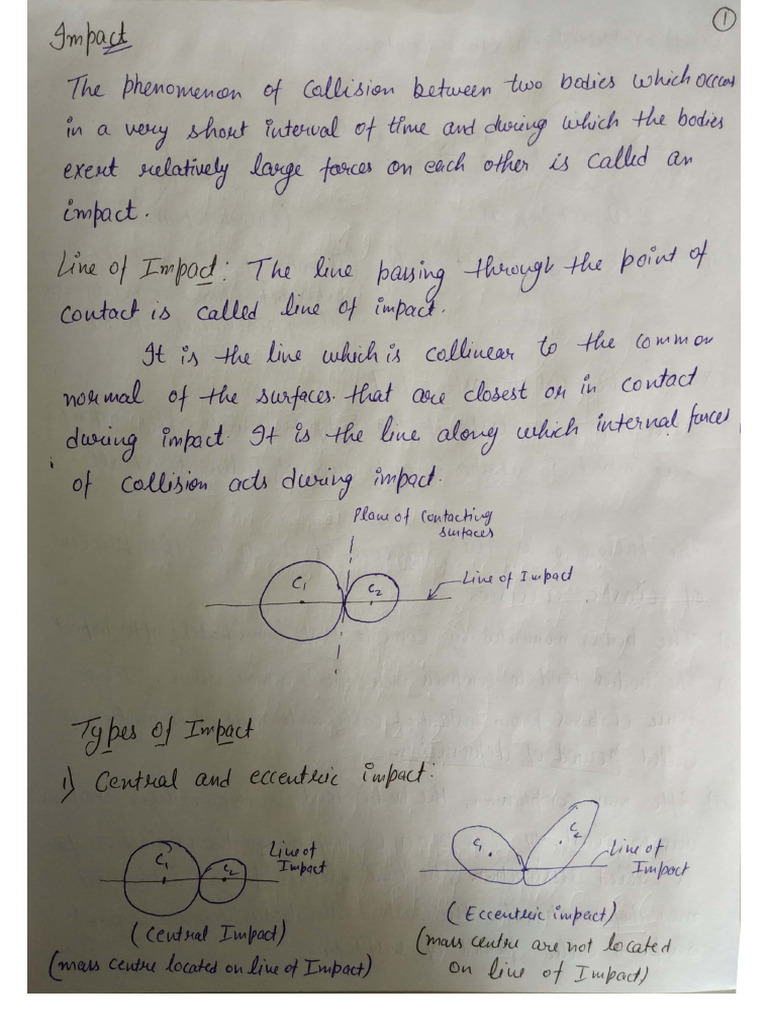 1
Impact
The phenomenon of collision between two bodies which occurs
in a very short interval of time and during which the bodies
exert relatively large forces on each other is called an
impact.
Line of Impact: The line passing through the point of
contact is called line of impact.
It is the line which is collinear to the common
normal of the surfaces that are closest or in contact
during impact. It is the line along which internal forces
of collision acts during impact.
Plane of contacting
surfaces
C1
C2
Line of Impact
Types of Impact
1) Central and eccentric impact:
C1
C2
Line of
Impact
C1
C2
Line of
Impact
(Central Impact)
(mass centre located on line of Impact)
(Eccentric impact)
(mass centre are not located
on line of Impact)